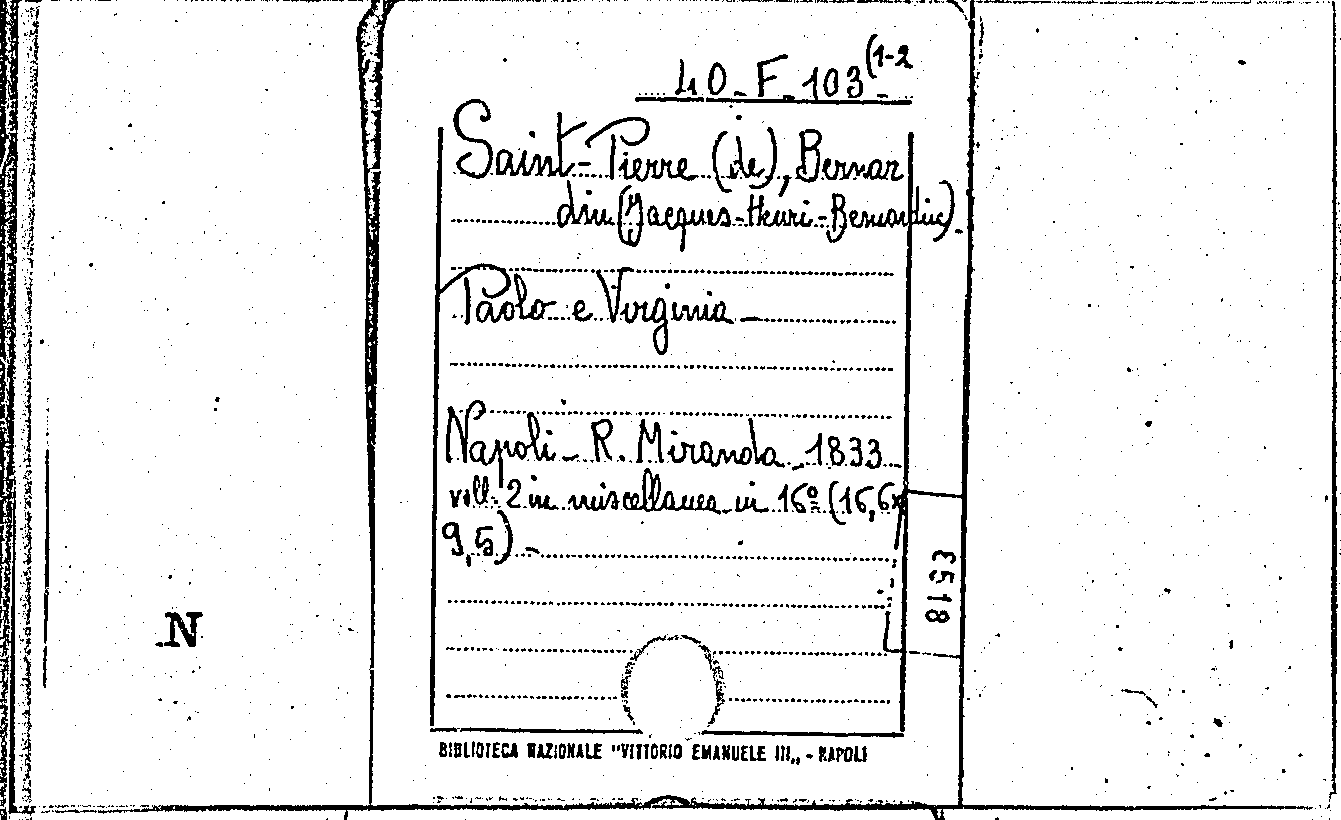 40_F_103(1-2
Saint-Pierre (de), Bernar
din (Jacques-Henri-Bernardin)_
Paolo e Virginia_
Napoli_ R. Miranda_1833_
voll. 2 in miscellanea in 16º (16,6x
9,5)_
8518
N
BIBLIOTECA NAZIONALE "VITTORIO EMANUELE III„ - NAPOLI